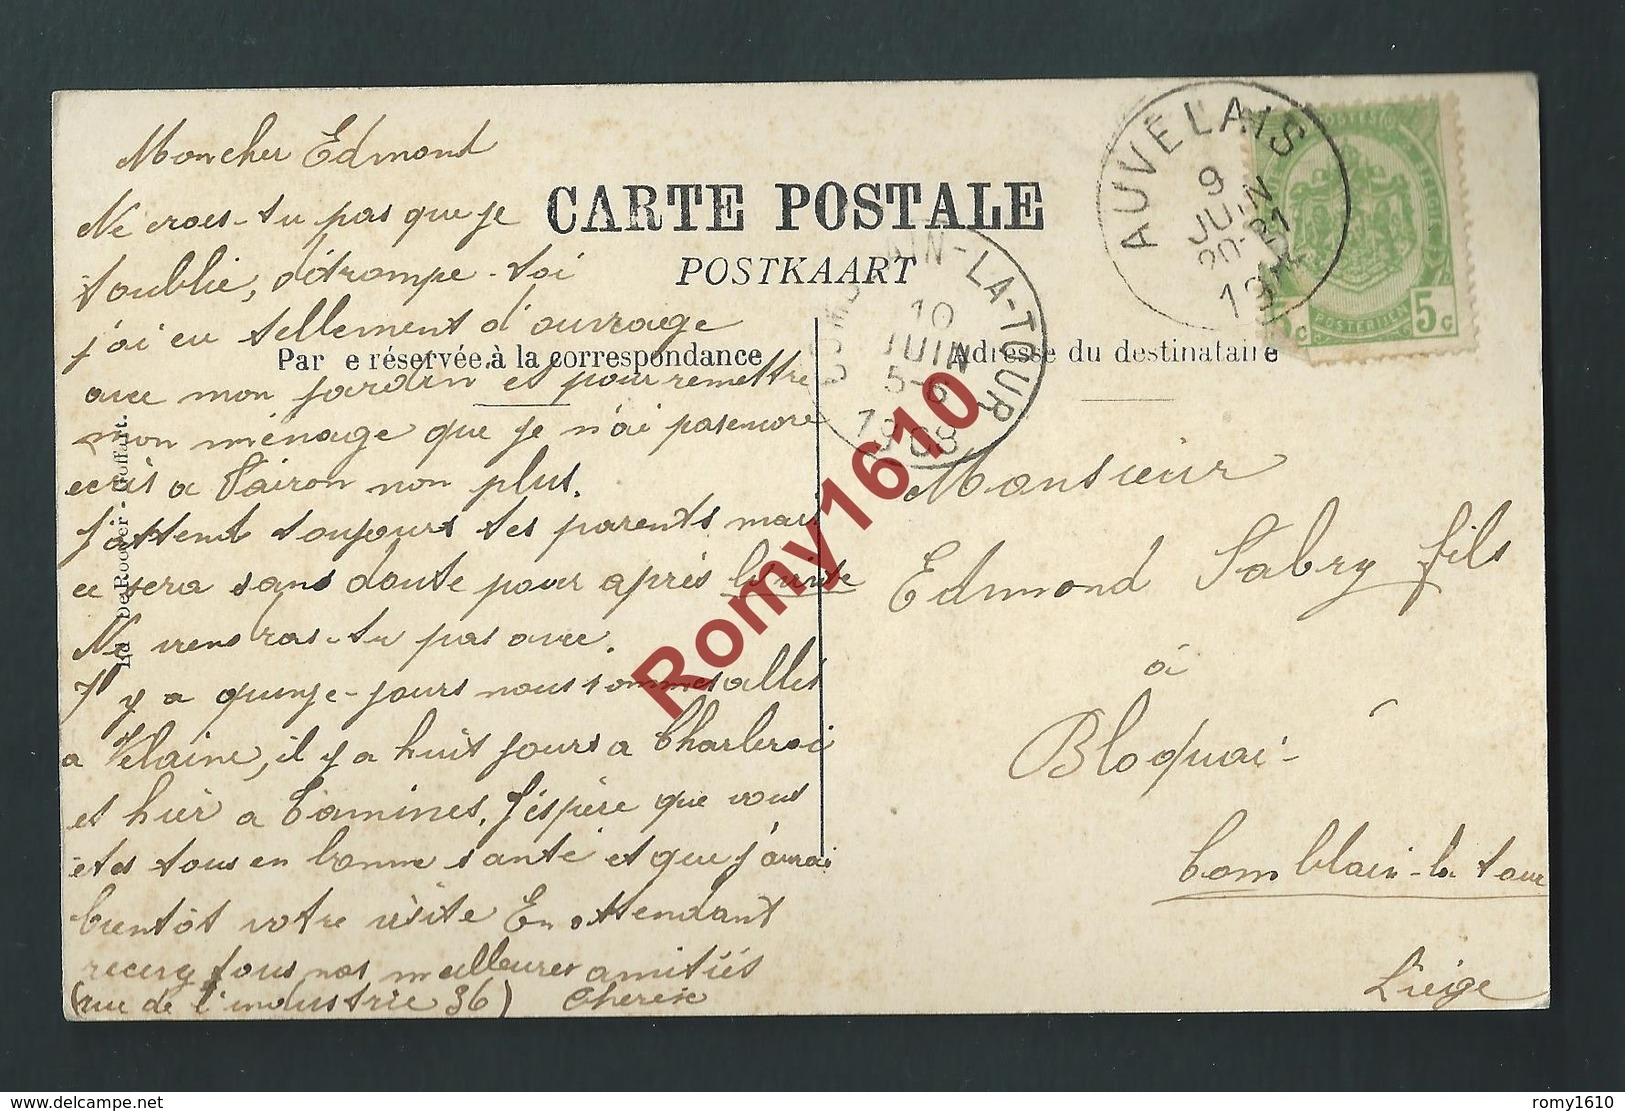 Mon cher Edmond
Ne crois-tu pas que je
t'oublie, détrompe-toi
j'ai eu tellement d'ouvrage
avec mon jardin et pour remettre
mon ménage que je n'ai pas encore
écris a Vairon non plus.
J'attend toujours tes parents mais
ce sera sans doute pour après la visite
Ne viendras-tu pas avec.
Il y a quinze-jours nous sommes allés
a Velaine, il y a huit jours a Charleroi
et hier a Tamines. J'éspère que vous
êtes tous en bonne santé et que j'aurai
bientôt votre visite En attendant
recevez tous nos meilleures amitiés
(rue de l'industrie 36) Therese
CARTE POSTALE
POSTKAART
Par e réservée à la correspondance
Adresse du destinataire
Ed De Rooder - Goffart.
AUVELAIS
9
JUIN
20-21
19
IN-LA-TOUR
10
JUIN
5-6
1908
POSTES
BELGIQUE
POSTERIJEN
5c
Monsieur
Edmond Sabry fils
à
Bloquai-
Comblain-la tour
Liége
Romy1610
delcampe.net
romy1610